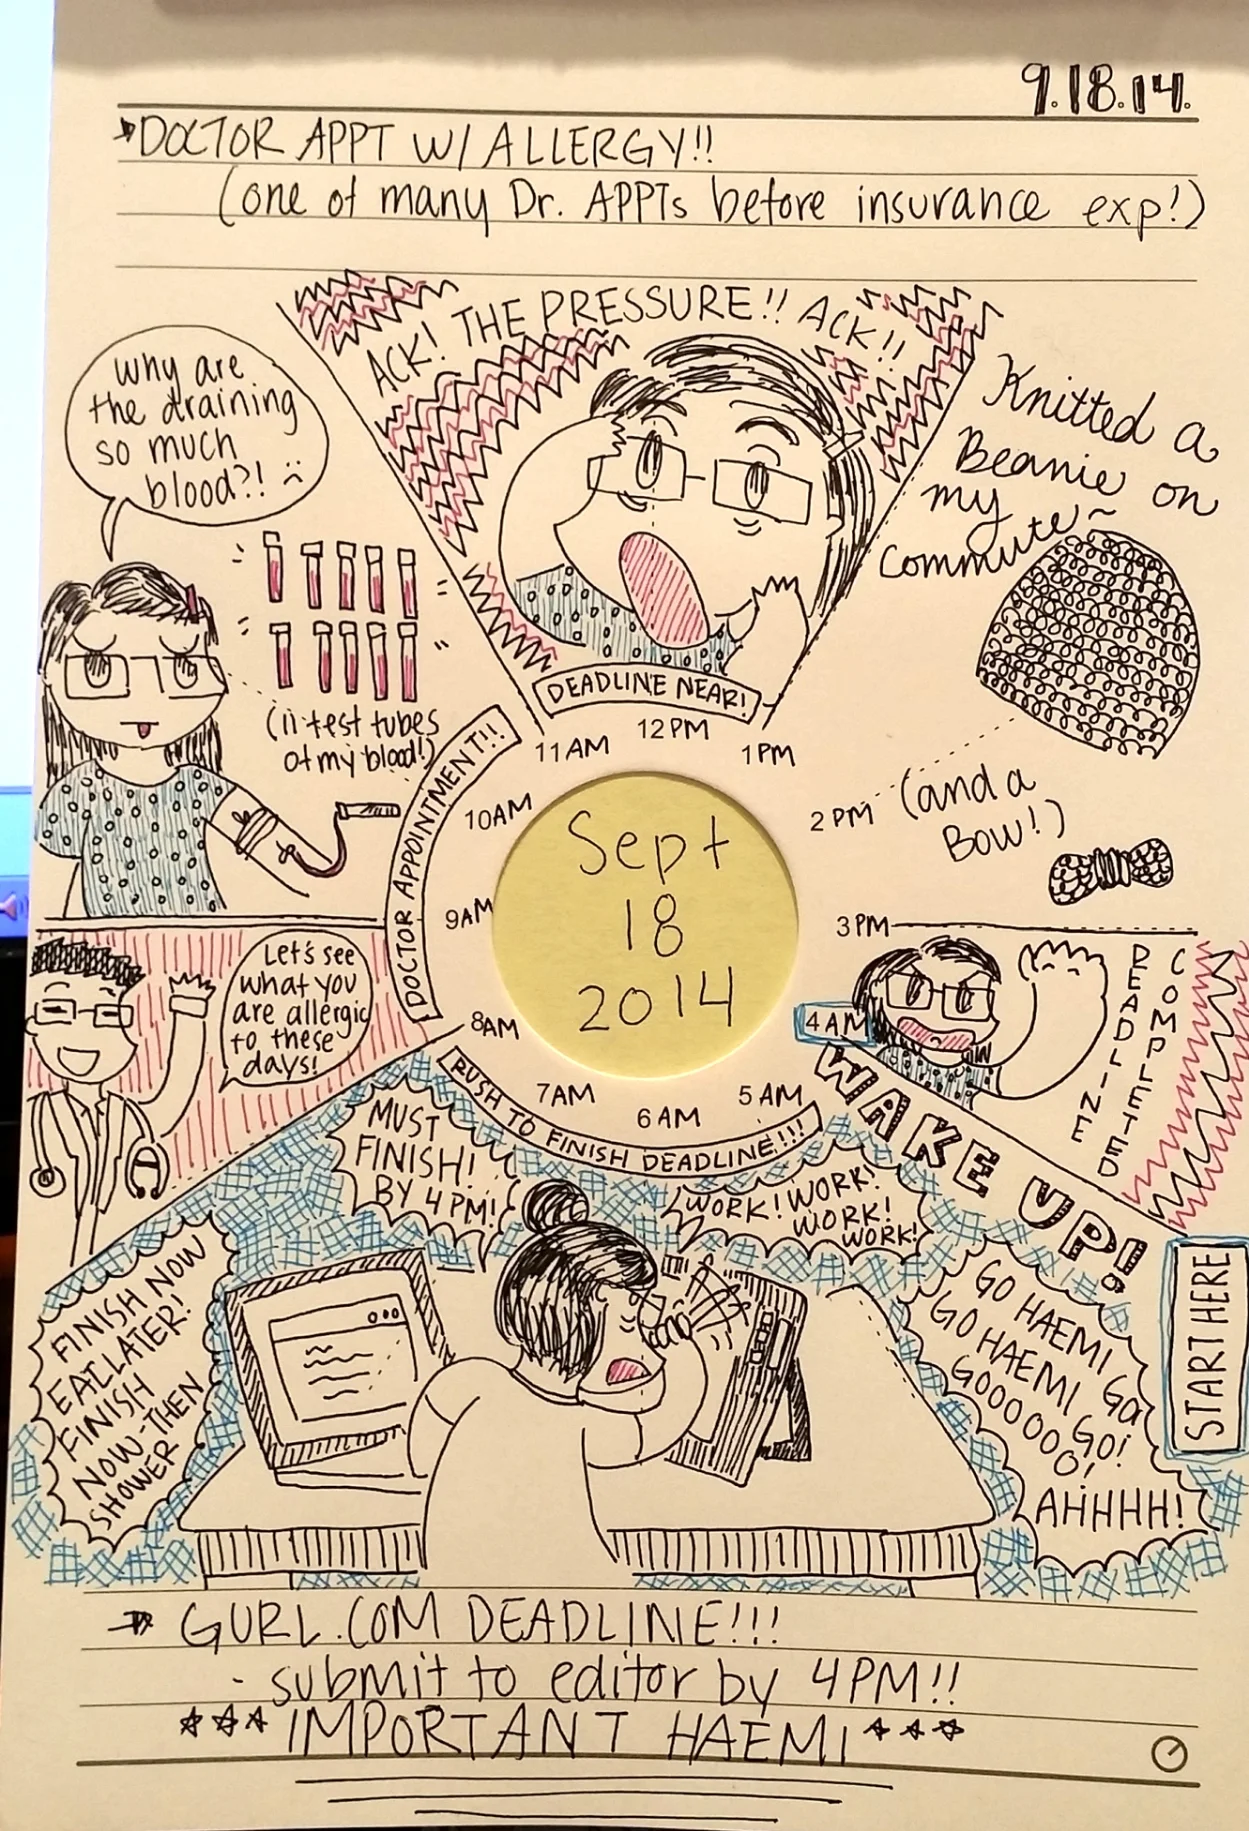 9.18.14.
DOCTOR APPT W/ ALLERGY!!
(one of many Dr. APPTs before insurance exp!)
ACK! THE PRESSURE!! ACK!!
why are
the draining
so much
blood?! :(
(11 test tubes
of my blood!)
Knitted a
Beanie on
my
commute~
(and a
Bow!)
DEADLINE NEAR!
DOCTOR APPOINTMENT!!
11AM
12PM
1PM
10AM
2PM
9AM
3PM
8AM
4AM
7AM
6AM
5AM
Sept
18
2014
Let's see
what you
are allergic
to these
days!
DEADLINE
COMPLETED
RUSH TO FINISH DEADLINE!!!
WAKE UP!
START HERE
MUST
FINISH!
BY 4PM!
WORK! WORK!
WORK!
WORK!
FINISH NOW
EAT LATER!
FINISH
NOW-THEN
SHOWER
GO HAEMI
GO HAEMI GO
GOOOOO GO!
O!
AHHHH!
GURL.COM DEADLINE!!!
- submit to editor by 4PM!!
*** IMPORTANT HAEMI ***